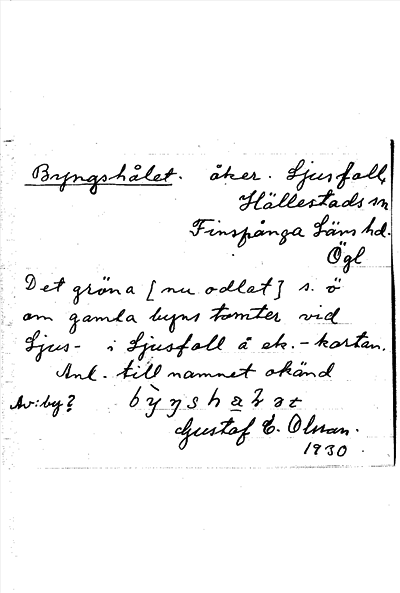 Bryngshålet. åker. Ljusfall,
Hällestads sn
Finspånga Läns hd.
Ögl
Det gröna [nu odlat] s. ö
om gamla byns tomter vid
Ljus- i Ljusfall å ek.-kartan.
Anl. till namnet okänd
Av: by?
Gustaf E. Olsson.
1930